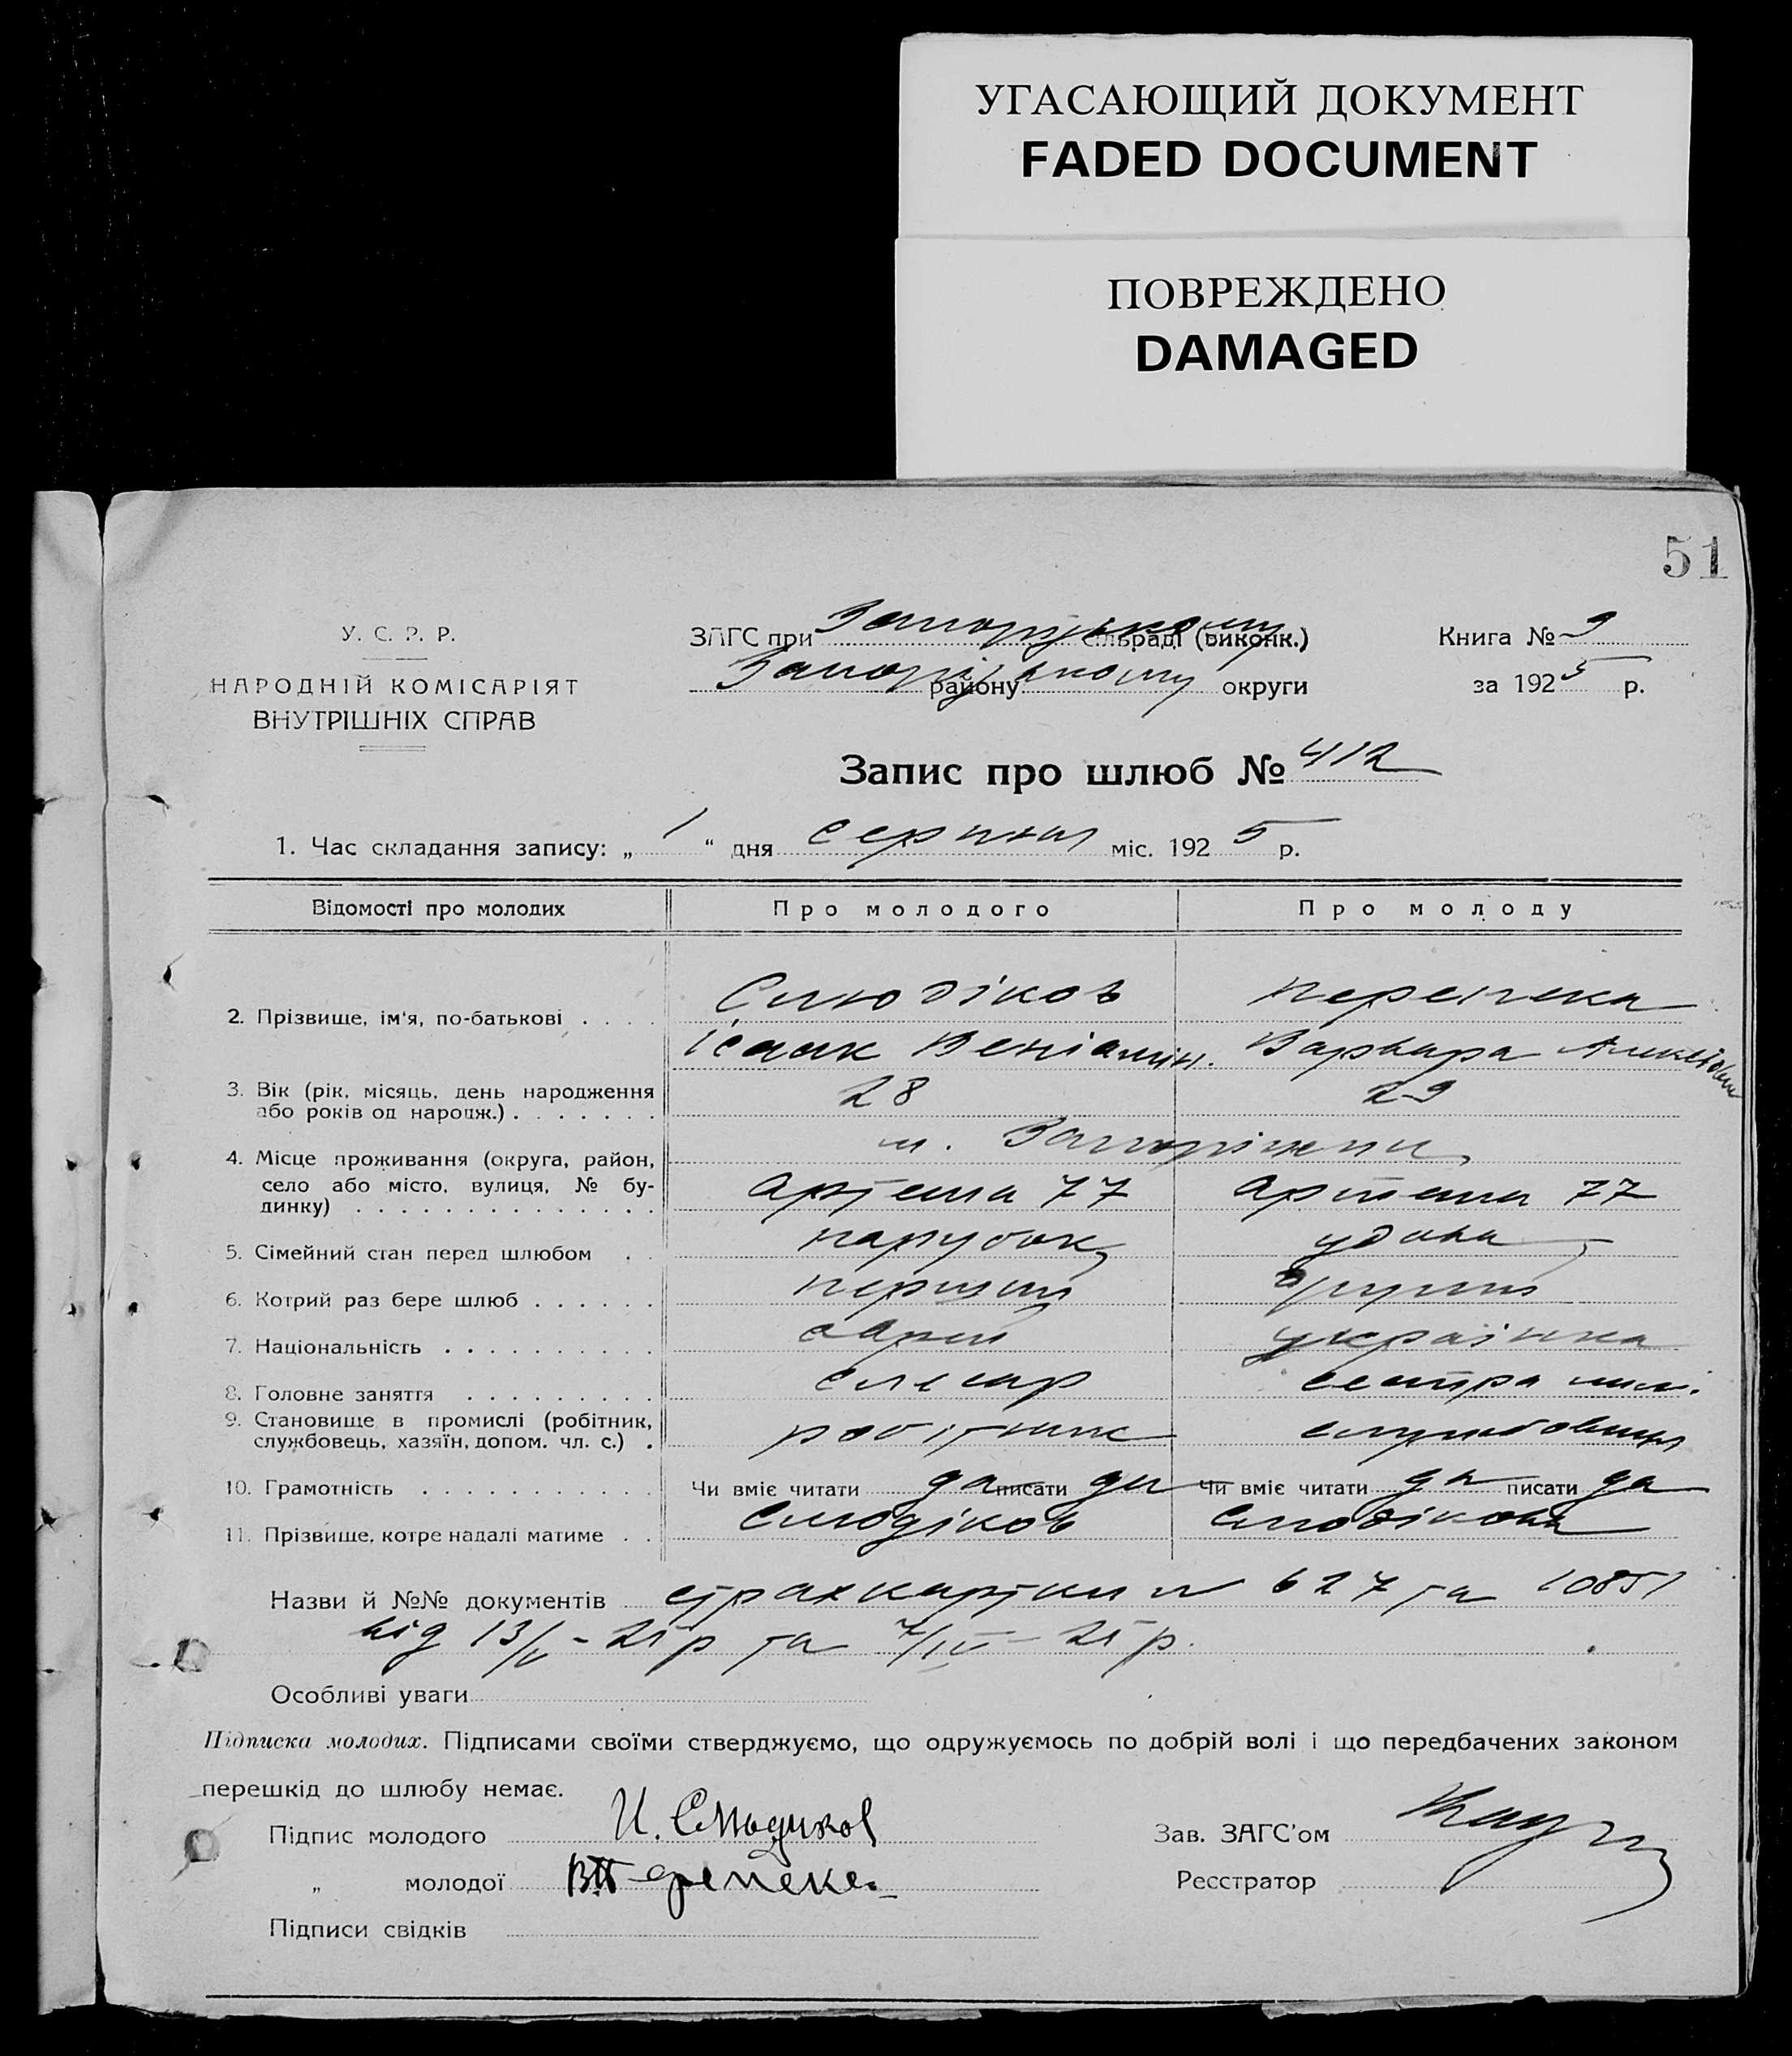 УГАСАЮЩИЙ ДОКУМЕНТ
FADED DOCUMENT
ПОВРЕЖДЕНО
DAMAGED
51
У. С. Р. Р.
НАРОДНІЙ КОМІСАРІЯТ
ВНУТРІШНІХ СПРАВ
ЗАГС при Запорізькому сільраді (виконк.)
Запорізькому району округи
Книга № 9
за 1925 р.
Запис про шлюб № 412
1. Час складання запису: „ 1 “ дня серпня міс. 1925 р.
Відомості про молодих Про молодого Про молоду
2. Прізвище, ім'я, по-батькові . . . . Слюдіков Перепека
Ісаак Веніамін. Варвара
3. Вік (рік, місяць, день народження
або років од народж.) . . . . . . . 28 29
4. Місце проживання (округа, район, м. Запоріжжя
село або місто, вулиця, № бу-
динку) . . . . . . . . . . . . . . Артема 77 Артема 77
5. Сімейний стан перед шлюбом . . парубок удова
6. Котрий раз бере шлюб . . . . . . перший другий
7. Національність . . . . . . . . . . еврей українка
8. Головне заняття . . . . . . . . . слесар сестра
9. Становище в промислі (робітник,
службовець, хазяїн, допом. чл. с.) . робітник службовиця
10. Грамотність . . . . . . . . . . . Чи вміє читати да писати да Чи вміє читати да писати да
11. Прізвище, котре надалі матиме . . Слюдіков Слюдікова
Назви й №№ документів страхкартки № 627 та 10851
від 13/V - 25 р та 7/IV - 25 р.
Особливі уваги
Підписка молодих. Підписами своїми стверджуємо, що одружуємось по добрій волі і що передбачених законом
перешкід до шлюбу немає.
Підпис молодого И. Слюдиков Зав. ЗАГС'ом
„ молодої ВПерепека Реєстратор
Підписи свідків